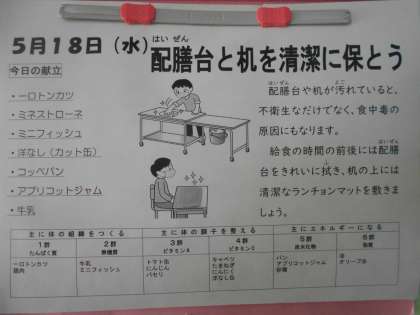 5月18日（水）
はいぜん
配膳台と机を清潔に保とう
今日の献立
・一口トンカツ
・ミネストローネ
・ミニフィッシュ
・洋なし（カット缶）
・コッペパン
・アプリコットジャム
・牛乳
はいぜん
配膳台や机が汚れていると、
不衛生なだけでなく、食中毒の
原因にもなります。
給食の時間の前後には配膳
台をきれいに拭き、机の上には
清潔なランチョンマットを敷きま
しょう。
主に体の組織をつくる
主に体の調子を整える
主にエネルギーになる
1群
たんぱく質
2群
無機質
3群
ビタミンA
4群
ビタミンC
5群
炭水化物
6群
脂質
一口トンカツ
豚肉
牛乳
ミニフィッシュ
トマト缶
にんじん
パセリ
キャベツ
たまねぎ
にんにく
洋なし缶
パン
アプリコットジャム
砂糖
油
オリーブ油